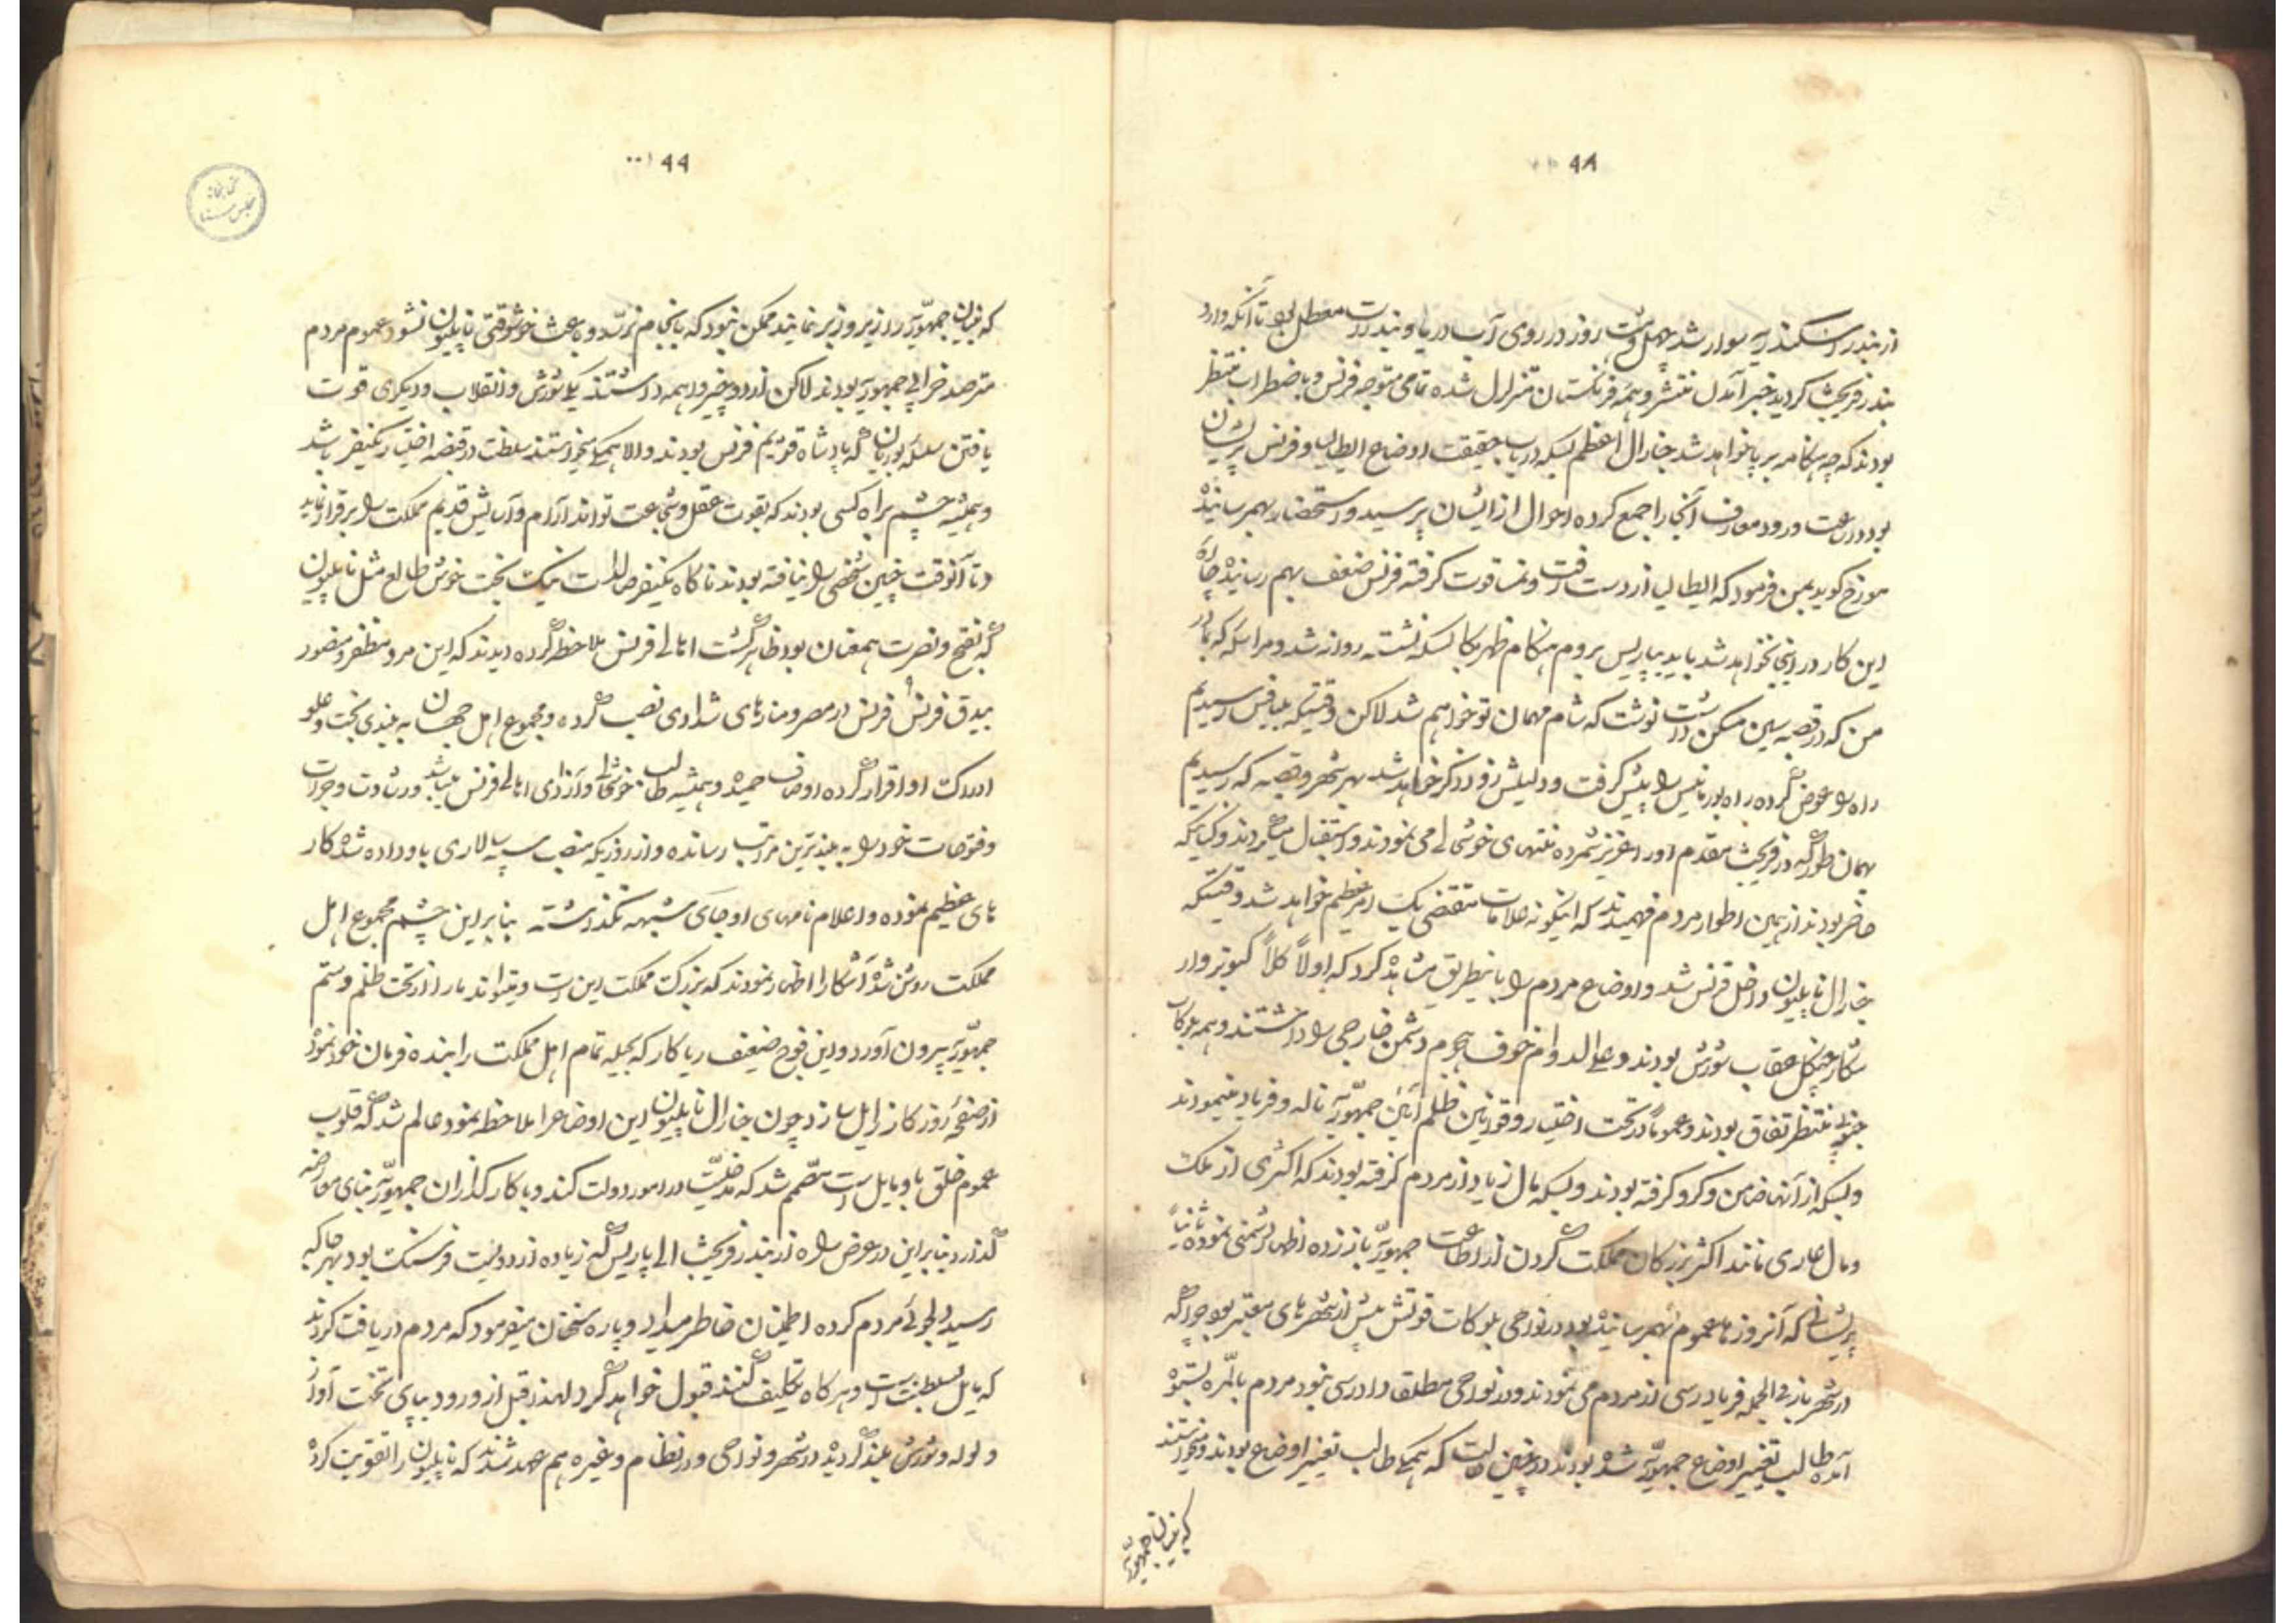 ۹۸
از بندر اسکندریه سوار شد چهل و هشت روز در روی آب دریا و بندرات معطل بود تا آنکه وارد
بندر فریجت گردید خبر آمدن منتشر و همه فرنگستان متزلزل شده تمامی متوجه فرنس و باضطراب منتظر
بودند که چه هنگامه بر پا خواهد شد جنارال اعظم بسکه در باب حقیقت اوضاع ایطالیا و فرنس پریشان
بود در ساعت ورود معارف آنجا را جمع کرده احوال از ایشان پرسید و استحضار بهمرسانیده
مورخ گوید بمن فرمود که ایطالیا از دست رفت و نمسا قوت گرفته فرنس ضعف بهم رسانیده چاره
این کار در اینجا نخواهد شد باید بپاریس بروم هنگام ظهر بکالسکه نشسته روانه شد و مراسله که بمادر
من که در قصبه سین مسکن داشت نوشت که شام مهمان تو خواهیم شد لاکن وقتیکه بلیانس رسیدیم
راه را عوض کرده راه بوربانیس را پیش گرفت و دلیلش زود ذکر خواهد شد بهر شهر و قصبه که رسیدیم
همان طور که در فریجت مقدم او را عزیز شمرده منتهای خوشحالی می نمودند و استقبال میکردند و کسانیکه
حاضر بودند از همین اطوار مردم فهمیدند که اینگونه علامات مقتضی یک امر عظیم خواهد شد وقتیکه
جنارال ناپلیون داخل فرنس شد و اوضاع مردم را باینطریق مشاهده کرد که اولاً کلاً کبوتر وار
شکار چنگل عقاب شورش بودند و علی الدوام خوف هجوم دشمن خارجی را داشتند و همه بلوکات
جنوبی منتظر نفاق بودند و عموماً در تحت اختیار و قوانین ظلم آئین جمهوریه ناله و فریاد مینمودند
و بسکه از آنها ضامن و گرو گرفته بودند و بسکه مال زیاد از مردم گرفته بودند که اکثری از ملک
و مال عاری ماندند اکثر بزرگان مملکت گردن از اطاعت جمهوریه باز زده اظهار دشمنی نموده ثانیاً
پریشانی که آنروزها عموم بهمرسانیده بود در نواحی بلوکات قوتش بیش از شهرهای معتبر بود چرا که
در شهر باز فی الجمله فریادرسی از مردم می نمودند و در نواحی مطلقا دادرسی نبود مردم بالمره بستوه
آمده طالب تغییر اوضاع جمهوریه شده بودند در چنین حالت که همگی طالب تغییر اوضاع بودند و میخواستند
که بنیان جمهوریه
۹۹
که بنیان جمهوریه را زیر و زبر نمایند ممکن نبود که بانجام نرسد و باعث خوشوقتی ناپلیون نشود عموم مردم
مترصد خرابی جمهوریه بودند لاکن از دو چیز واهمه داشتند یکی شورش و انقلاب و دیگری قوت
یافتن سلسله بوربان که پادشاه قدیم فرنس بودند و الا همگی میخواستند سلطنت در قبضه اختیار یکنفر باشد
و همیشه چشم براه کسی بودند که بقوت عقل و شجاعت تواند آرام و آسایش قدیم مملکت را برقرار نماید
و تا آنوقت چنین شخصی را نیافته بودند ناگاه یکنفر صاحب نیک بخت خوش طالع مثل ناپلیون
که بفتح و نصرت همعنان بود ظاهر گشت اهالی فرنس ملاحظه کرده دیدند که این مرد مظفر و منصور
بیدق فرنس در مصر و منارهای شدادی نصب کرده و مجموع اهل جهان به بلندی بخت و علو
ادراک او اقرار کرده اوصاف حمیده و همیشه طالب خوشحالی و آزادی اهالی فرنس میباشد و رشادت و جرات
و فتوحات خود را به بلندترین مراتب رسانده و از روزیکه منصب سپه سالاری باو داده شده کار
های عظیم نموده و اعلام نامهای او جای شبهه نگذاشته بنابراین چشم مجموع اهل
مملکت روشن شده آشکارا اظهار نمودند که بزرگ مملکت این است و میتواند ما را از تحت ظلم و ستم
جمهوریه بیرون آورد و این فوج ضعیف ریاکار که بحیله تمام اهل مملکت را بنده فرمان خود نموده
از صفحه روزگار زایل سازد چون جنارال ناپلیون این اوضاع را ملاحظه نمود عالم شد که قلوب
عموم خلق باو مایل است مصمم شد که مدخلیت در امور دولت کند و با کارگذاران جمهوریه بنای معارضه
گذارد بنابراین در عرض راه از بندر فریجت الی پاریس که زیاده از دویست فرسنگ بود بهر جا که
رسید دلجوئی مردم کرده اطمینان خاطر میداد و پاره سخنان میفرمود که مردم دریافت کردند
که مایل بسلطنت است و هر گاه تکلیف کنند قبول خواهد کرد لهذا قبل از ورود بپای تخت آواز
و لوله و شورش بلند گردیده در شهر و نواحی و در نظام و غیره هم عهد شدند که ناپلیون را تقویت کرده